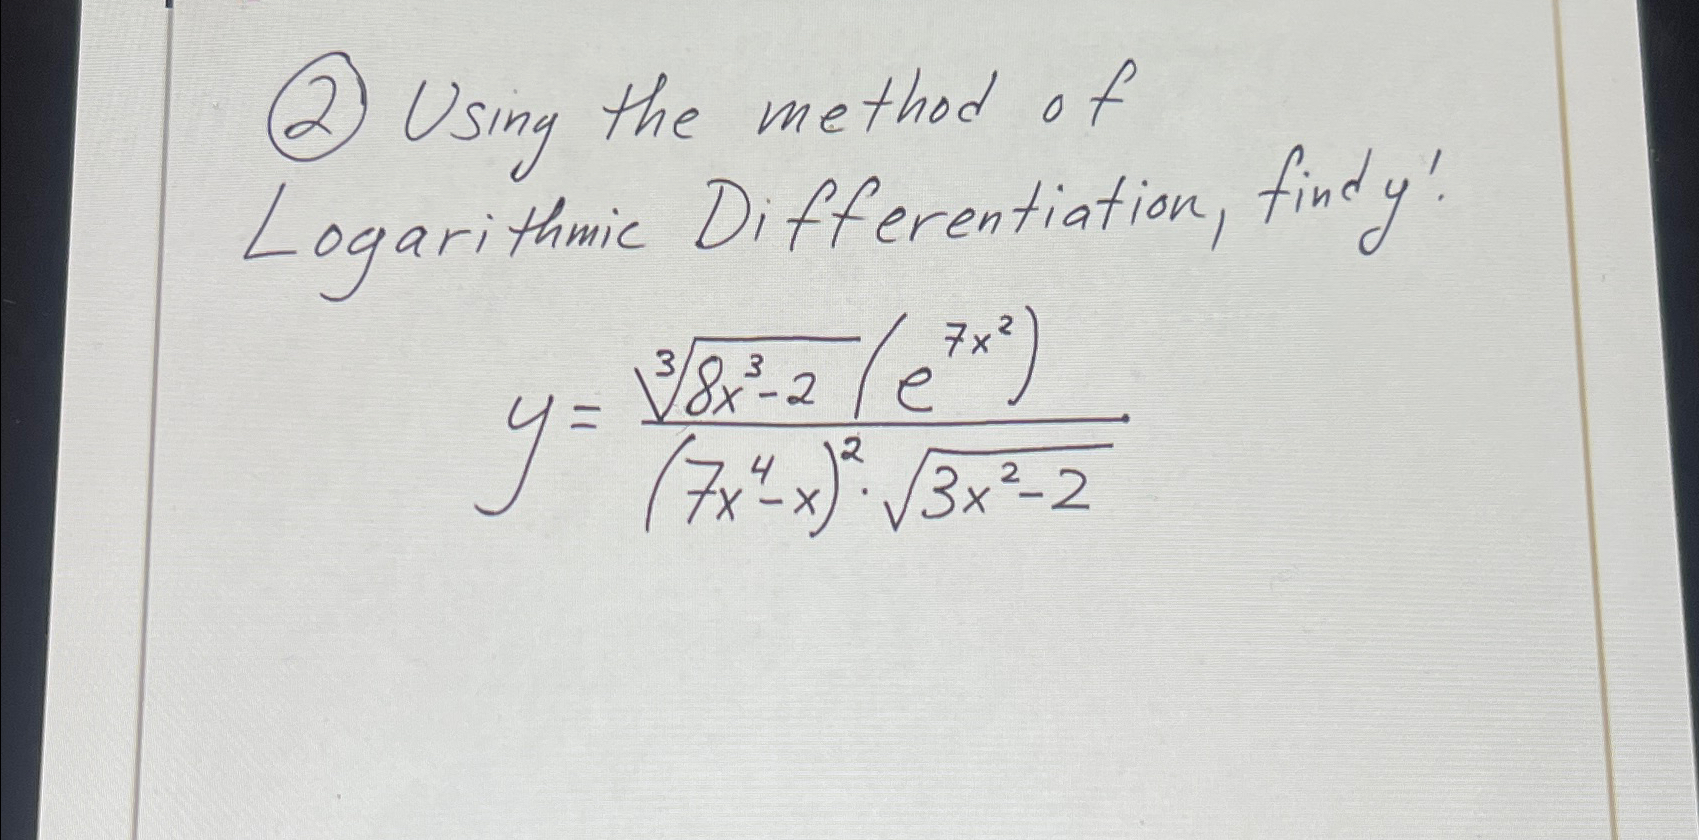 ② Using the method of
Logarithmic Differentiation, find y'.
y = \frac{\sqrt[3]{8x^3-2}(e^{7x^2})}{(7x^4-x)^2 \cdot \sqrt{3x^2-2}}